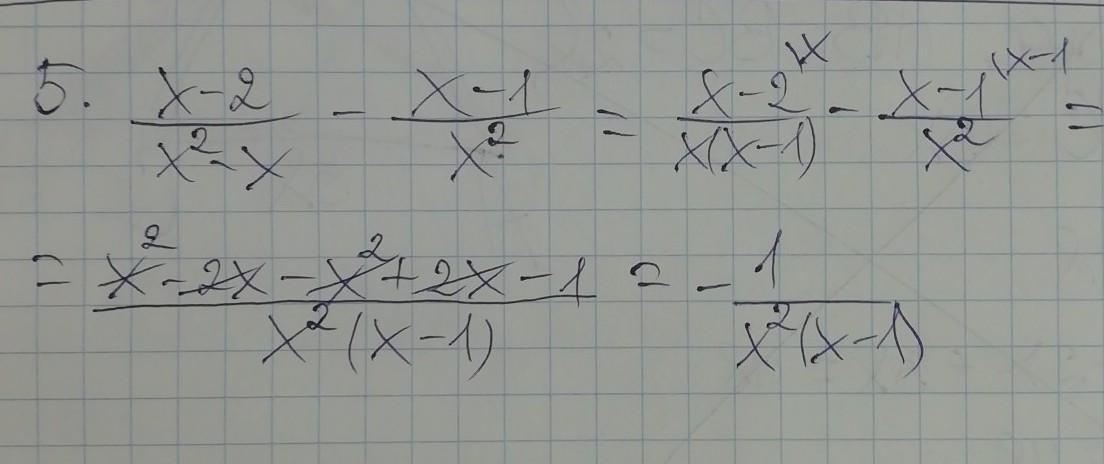 5. \frac{x-2}{x^2-x} - \frac{x-1}{x^2} = \frac{x-2^{\backslash x}}{x(x-1)} - \frac{x-1^{\backslash x-1}}{x^2} =
= \frac{x^2-2x-x^2+2x-1}{x^2(x-1)} = -\frac{1}{x^2(x-1)}